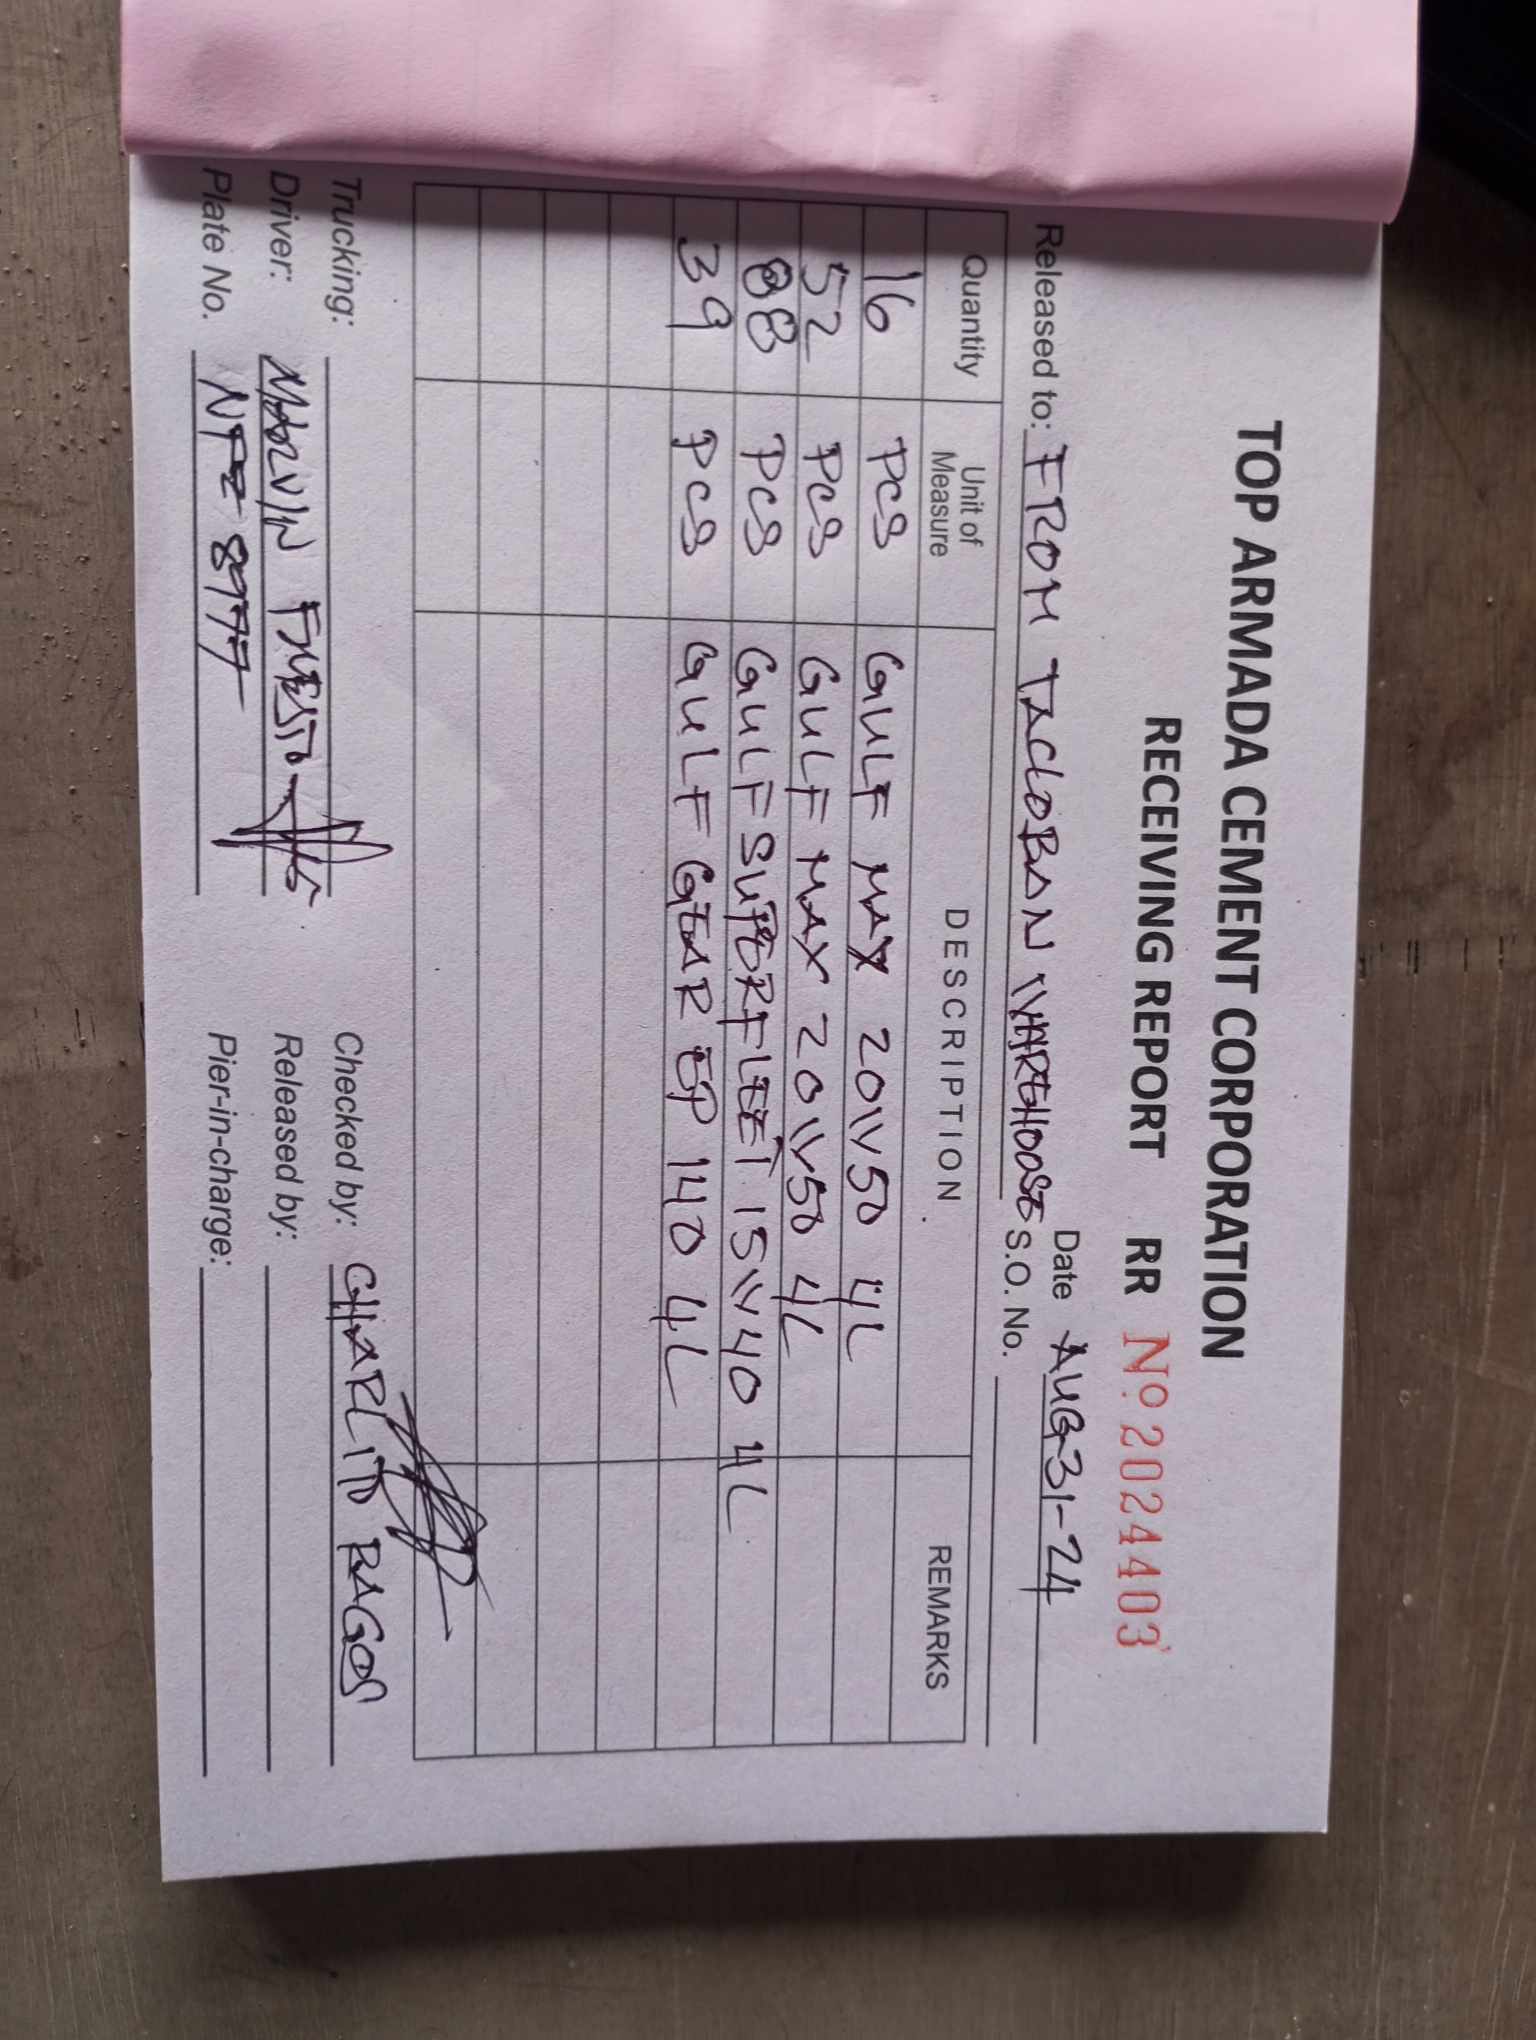 TOP ARMADA CEMENT CORPORATION
RECEIVING REPORT RR Nº 2024403
Date AUG-31-24
Released to: FROM TACLOBAN WAREHOUSE S.O. No.
Quantity Unit of Measure DESCRIPTION REMARKS
16 PCS GULF MAX 20W50 4L
52 PCS GULF MAX 20W50 4L
88 PCS GULF SUPERFLEET 15W40 4L
39 PCS GULF GEAR EP 140 4L
Trucking: Checked by: CHARLITO RAGOS
Driver: MARVIN Released by:
Plate No. NFZ 8977 Pier-in-charge: